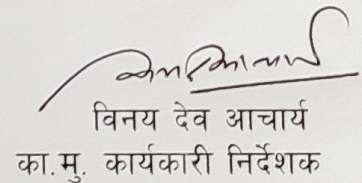 विनय देव आचार्य
का.मु. कार्यकारी निर्देशक